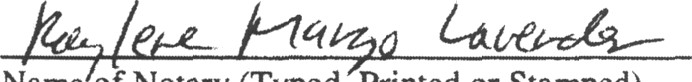 Raylene Margo Lavender
Name of Notary (Typed, Printed or Stamped)